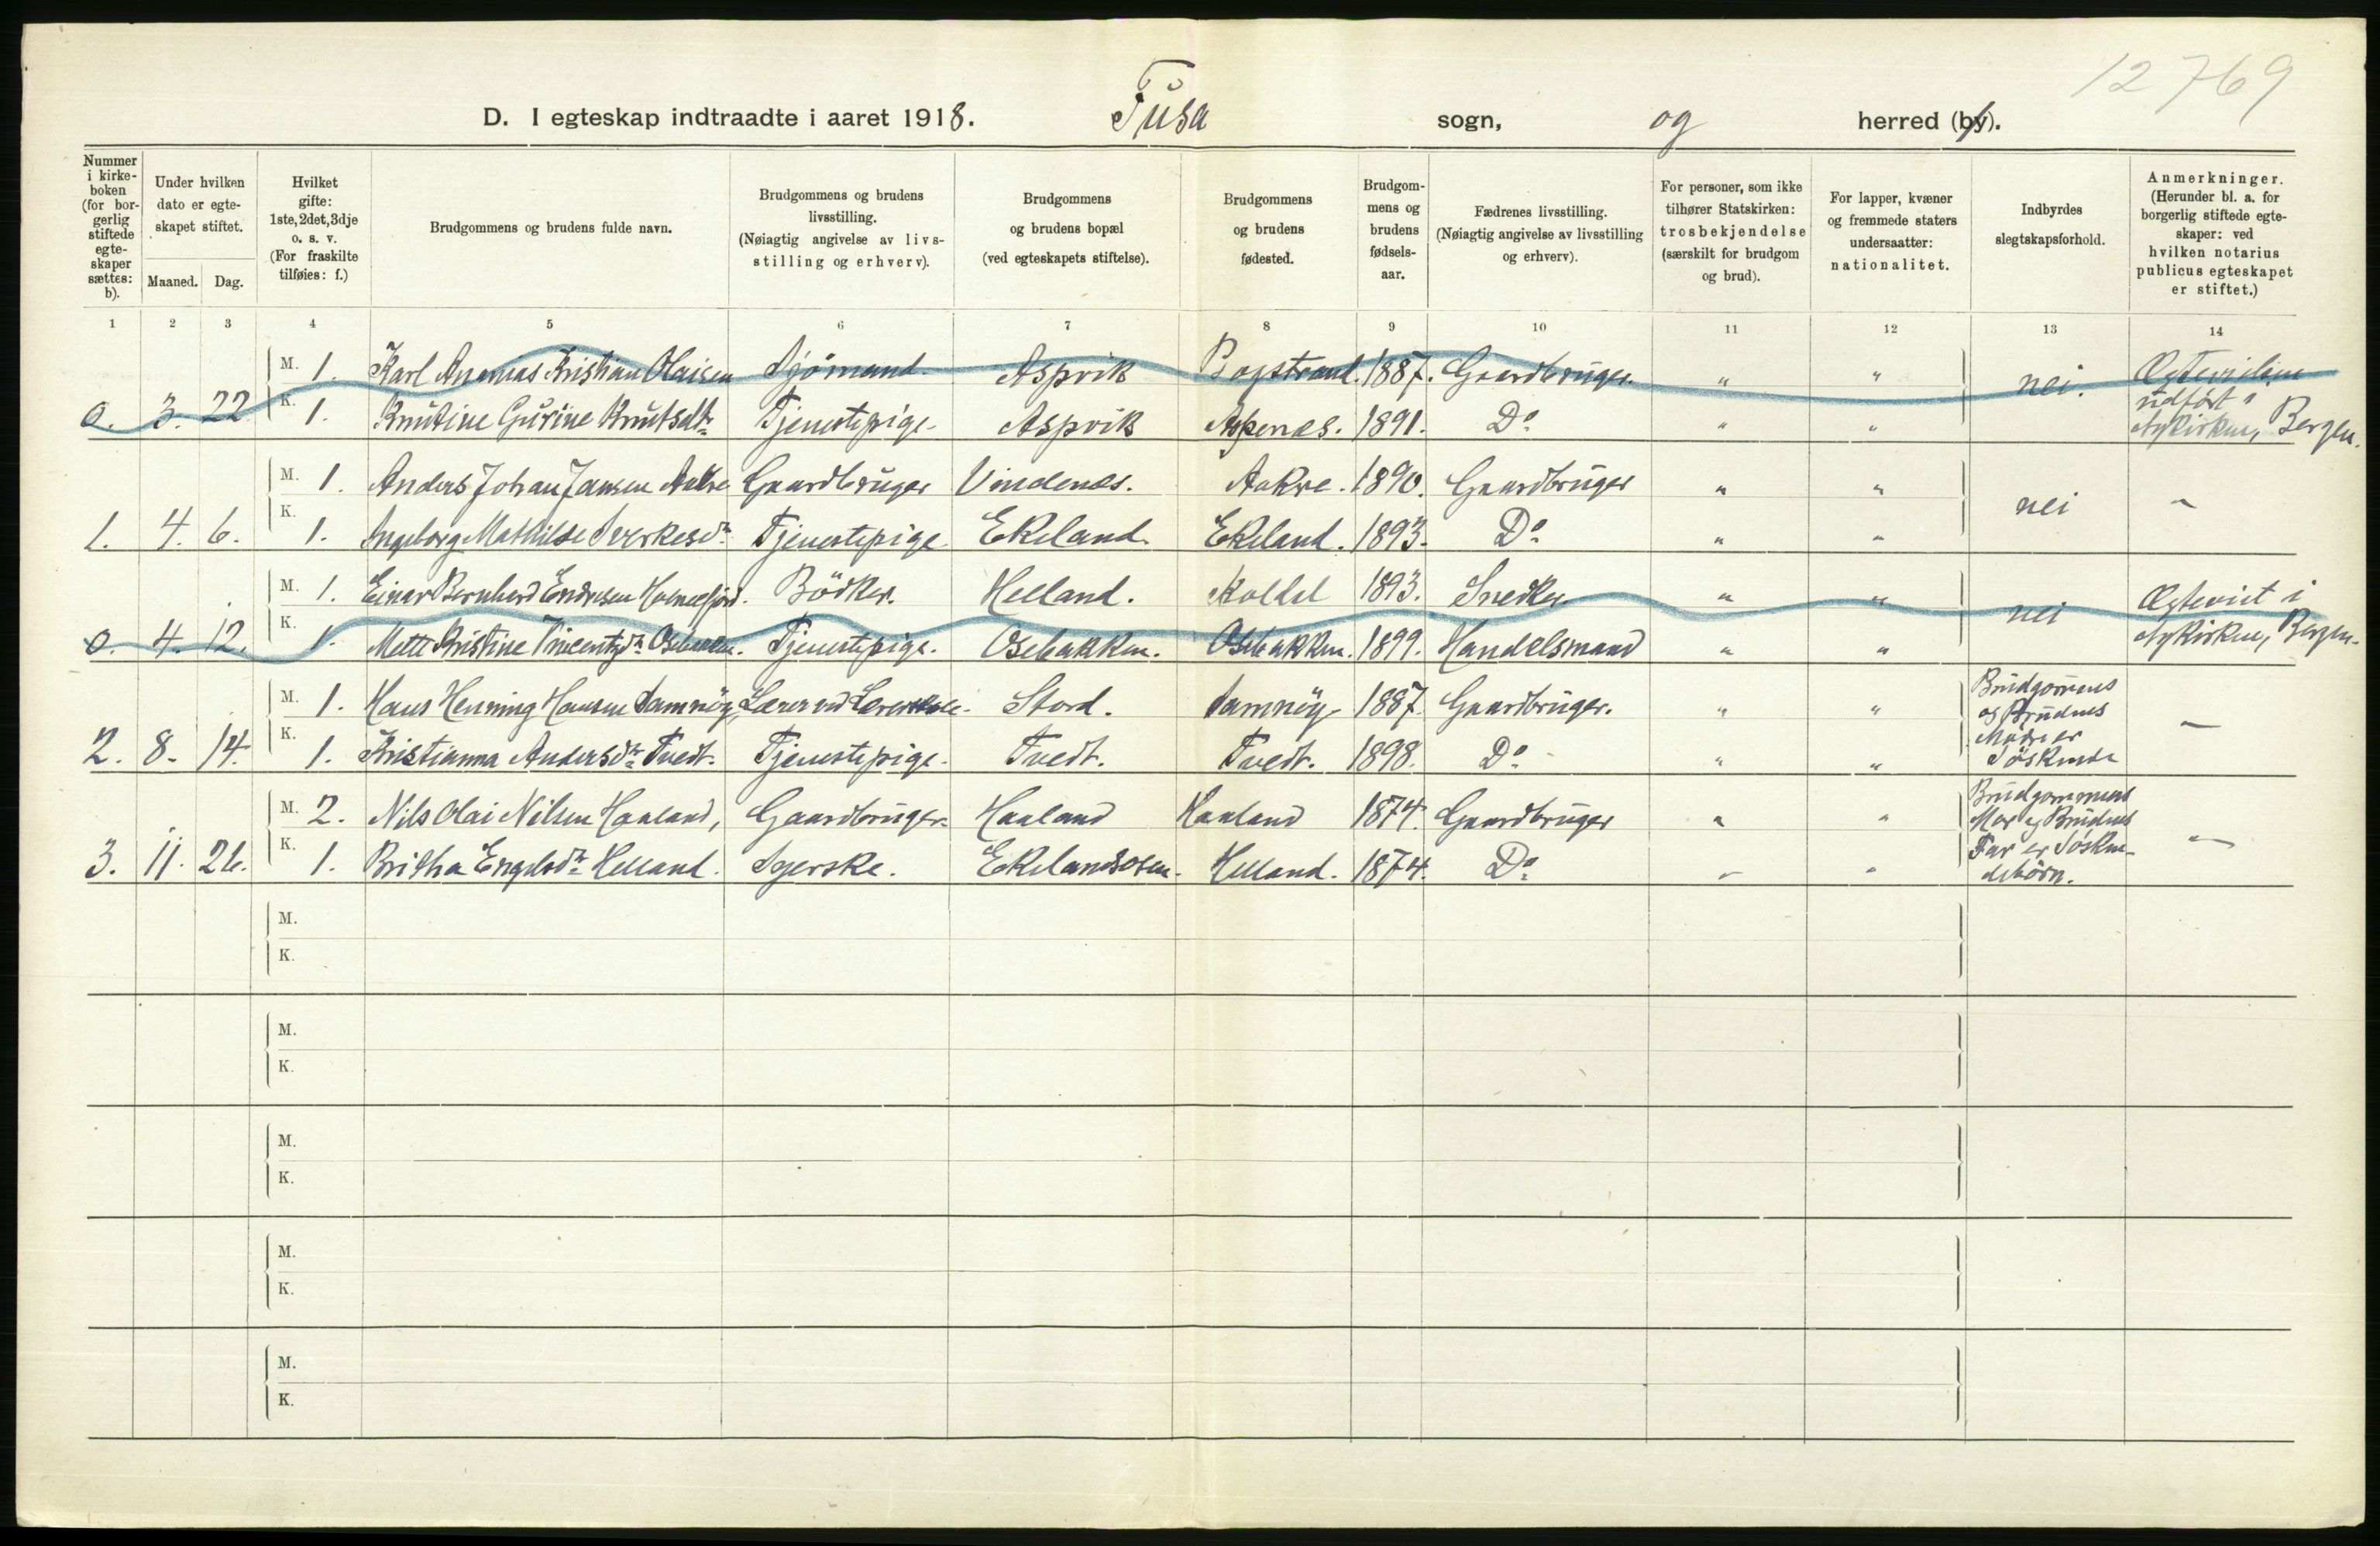 12769
D. I egteskap indtraadte i aaret 1918. Fusa sogn, og herred (by).
Nummer i kirke-boken (for bor-gerlig stiftede egte-skaper sættes: b).
Under hvilken dato er egte-skapet stiftet.
Maaned. Dag.
Hvilket gifte: 1ste, 2det, 3dje o. s. v. (For fraskilte tilføies: f.)
Brudgommens og brudens fulde navn.
Brudgommens og brudens livsstilling. (Nøiagtig angivelse av livs-stilling og erhverv).
Brudgommens og brudens bopæl (ved egteskapets stiftelse).
Brudgommens og brudens fødested.
Brudgom-mens og brudens fødsels-aar.
Fædrenes livsstilling. (Nøiagtig angivelse av livsstilling og erhverv).
For personer, som ikke tilhører Statskirken: trosbekjendelse (særskilt for brudgom og brud).
For lapper, kvæner og fremmede staters undersaatter: nationalitet.
Indbyrdes slegtskapsforhold.
Anmerkninger. (Herunder bl. a. for borgerlig stiftede egte-skaper: ved hvilken notarius publicus egteskapet er stiftet.)
1 2 3 4 5 6 7 8 9 10 11 12 13 14
M. 1. Karl Ananias Kristian Olaisen Sjömand. Aspvik 1887. Gaardbruger. " " nei. Ægtevielsen udført i Nykirken, Bergen.
0. 3. 22 K. 1. Knutine Gurine Knutsdtr Tjenestepige. Aspvik Aspenes. 1891. Do " "
M. 1. Anders Johan Jansen Aakre Gaardbruger Vindenes. Aakre. 1890. Gaardbruger " " nei –
1. 4. 6. K. 1. Ingeborg Mathilde Sverkesdtr Tjenestepige Ekeland. Ekeland. 1893. Do " "
M. 1. Einar Bernhard Endresen Holmefjord. Bödker. Helland. Koldal 1893. Snedker " " nei Ægteviet i Nykirken, Bergen.
0. 4. 12. K. 1. Mette Kristine Vincentzdtr Osebakken. Tjenestepige. Osebakken. Osebakken. 1899. Handelsmand " "
M. 1. Hans Henning Hansen Samnöy, Lærer ved Lærerskole. Stord. Samnöy 1887. Gaardbruger. " " Brudgommens og Brudens Mödre er Söskende –
2. 8. 14. K. 1. Kristianna Andersdtr Tvedt. Tjenestepige. Tvedt. Tvedt. 1898. Do " "
M. 2. Nils Olai Nilsen Haaland, Gaardbruger. Haaland Haaland 1874. Gaardbruger " " Brudgommens Mor og Brudens Far er Söskendebörn. –
3. 11. 26. K. 1. Britha Engelsdtr Helland. Syerske. Ekelandsosen. Helland. 1874. Do " "
M.
K.
M.
K.
M.
K.
M.
K.
M.
K.